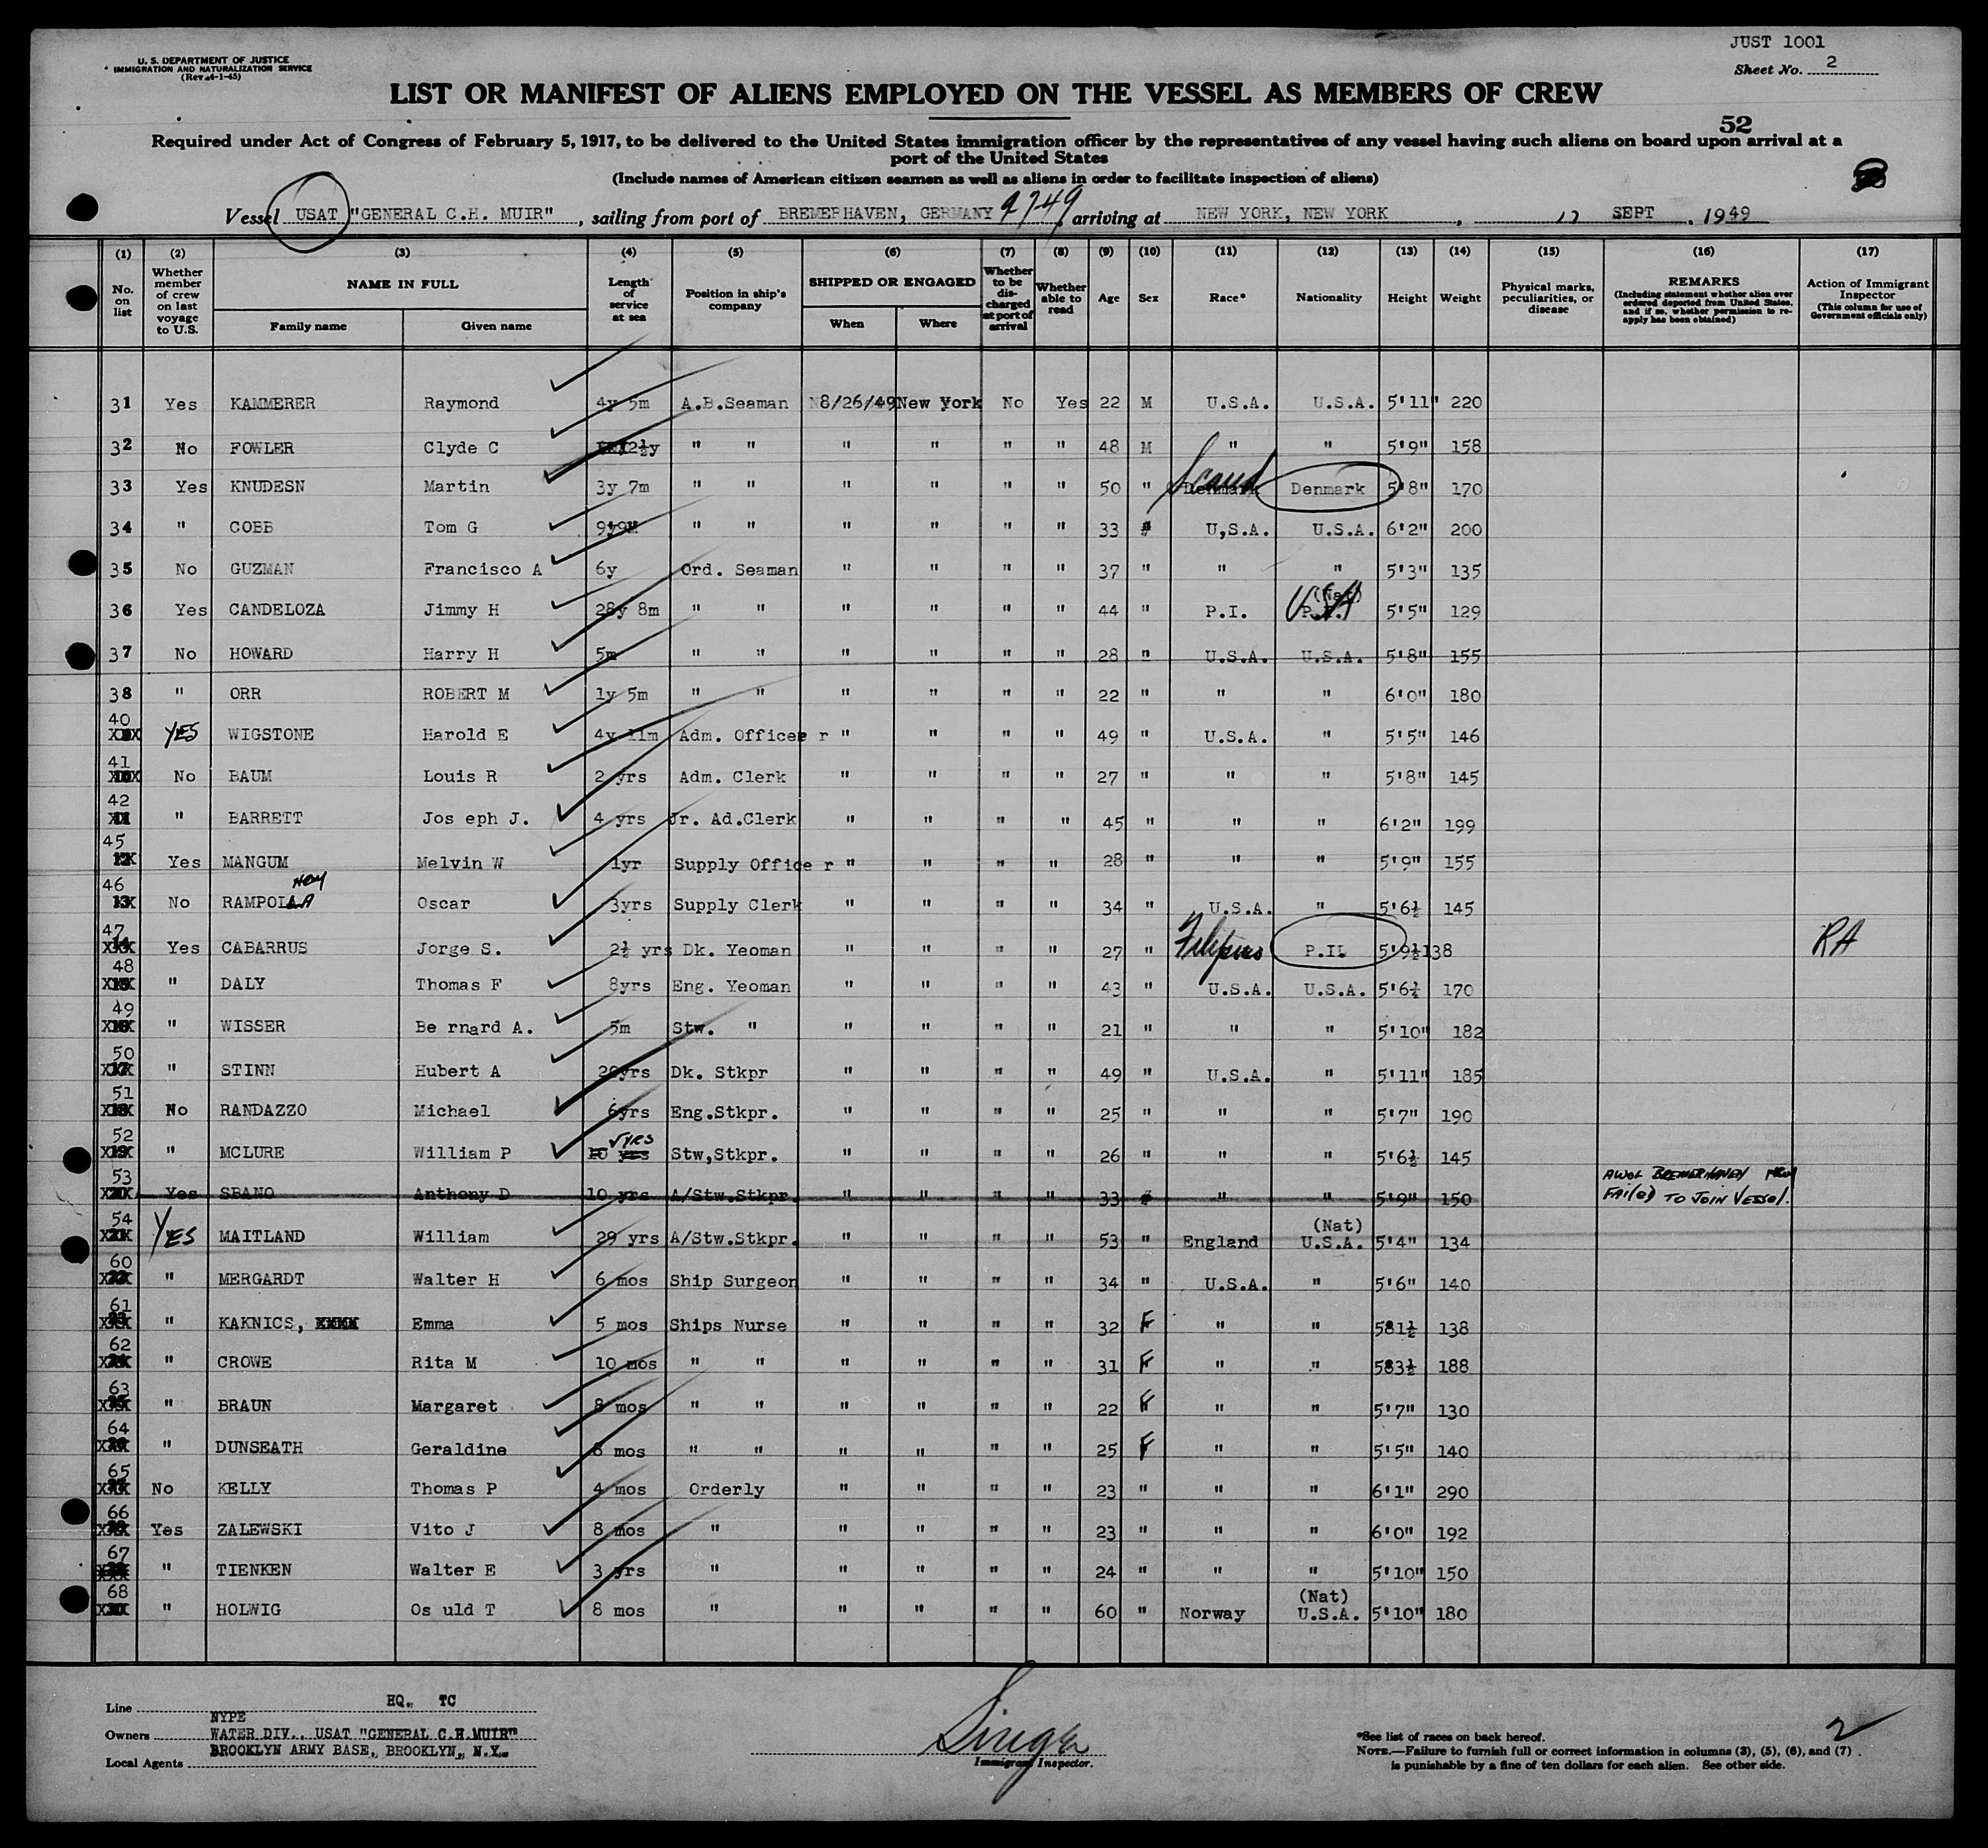 JUST 1001
U. S. DEPARTMENT OF JUSTICE
IMMIGRATION AND NATURALIZATION SERVICE
(Rev. 4-1-45)
Sheet No. 2
LIST OR MANIFEST OF ALIENS EMPLOYED ON THE VESSEL AS MEMBERS OF CREW
52
Required under Act of Congress of February 5, 1917, to be delivered to the United States immigration officer by the representatives of any vessel having such aliens on board upon arrival at a
port of the United States
(Include names of American citizen seamen as well as aliens in order to facilitate inspection of aliens)
Vessel USAT "GENERAL C.H. MUIR", sailing from port of BREMERHAVEN, GERMANY 9749, arriving at NEW YORK, NEW YORK, 12 SEPT, 1949
(1) (2) (3) (4) (5) (6) (7) (8) (9) (10) (11) (12) (13) (14) (15) (16) (17)
No. on list
Whether member of crew on last voyage to U.S.
NAME IN FULL
Family name
Given name
Length of service at sea
Position in ship's company
SHIPPED OR ENGAGED
When
Where
Whether to be discharged at port of arrival
Whether able to read
Age
Sex
Race*
Nationality
Height
Weight
Physical marks, peculiarities, or disease
REMARKS
(Including statement whether alien ever ordered deported from United States, and if so, whether permission to reapply has been obtained)
Action of Immigrant Inspector
(This column for use of Government officials only)
31 Yes KAMMERER Raymond 4y 5m A.B.Seaman 8/26/49 New York No Yes 22 M U.S.A. U.S.A. 5'11" 220
32 No FOWLER Clyde C 2½y " " " " " " 48 M " " 5'9" 158
33 Yes KNUDESN Martin 3y 7m " " " " " " 50 " Denmark Scand Denmark 5'8" 170
34 " COBB Tom G 9y9M " " " " " " 33 " U,S.A. U.S.A. 6'2" 200
35 No GUZMAN Francisco A 6y Ord. Seaman " " " " 37 " " " 5'3" 135
36 Yes CANDELOZA Jimmy H 28y 8m " " " " " " 44 " P.I. (Nat) P.I. USA 5'5" 129
37 No HOWARD Harry H 5m " " " " " " 28 " U.S.A. U.S.A. 5'8" 155
38 " ORR ROBERT M 1y 5m " " " " " " 22 " " " 6'0" 180
40 YES WIGSTONE Harold E 4y 11m Adm. Officer " " " " 49 " U.S.A. " 5'5" 146
41 No BAUM Louis R 2 yrs Adm. Clerk " " " " 27 " " " 5'8" 145
42 " BARRETT Jos eph J. 4 yrs Jr. Ad.Clerk " " " " 45 " " " 6'2" 199
45 Yes MANGUM Melvin W 1yr Supply Office r " " " " 28 " " " 5'9" 155
46 No RAMPOLLA Oscar 3yrs Supply Clerk " " " " 34 " U.S.A. " 5'6½ 145
47 Yes CABARRUS Jorge S. 2½ yrs Dk. Yeoman " " " " 27 " Filipino P.I. 5'9½ 138 RA
48 " DALY Thomas F 8yrs Eng. Yeoman " " " " 43 " U.S.A. U.S.A. 5'6½ 170
49 " WISSER Be rnard A. 5m Stw. " " " " " 21 " " " 5'10" 182
50 " STINN Hubert A 20yrs Dk. Stkpr " " " " 49 " U.S.A. " 5'11" 185
51 No RANDAZZO Michael 6yrs Eng.Stkpr. " " " " 25 " " " 5'7" 190
52 " MCLURE William P 10 yrs YRS Stw,Stkpr. " " " " 26 " " " 5'6½ 145
53 Yes SBANO Anthony D 10 yrs A/Stw.Stkpr. " " " " 33 " " " 5'9" 150 AWOL BREMERHAVEN FAILED TO JOIN VESSEL.
54 YES MAITLAND William 29 yrs A/Stw.Stkpr. " " " " 53 " England (Nat) U.S.A. 5'4" 134
60 " MERGARDT Walter H 6 mos Ship Surgeon " " " " 34 " U.S.A. " 5'6" 140
61 " KAKNICS, Emma 5 mos Ships Nurse " " " " 32 F " " 5'1½ 138
62 " CROWE Rita M 10 mos " " " " " " 31 F " " 5'3½ 188
63 " BRAUN Margaret 8 mos " " " " " " 22 F " " 5'7" 130
64 " DUNSEATH Geraldine 8 mos " " " " " " 25 F " " 5'5" 140
65 No KELLY Thomas P 4 mos Orderly " " " " 23 " " " 6'1" 290
66 Yes ZALEWSKI Vito J 8 mos " " " " " 23 " " " 6'0" 192
67 " TIENKEN Walter E 3 yrs " " " " " 24 " " " 5'10" 150
68 " HOLWIG Os uld T 8 mos " " " " " 60 " Norway (Nat) U.S.A. 5'10" 180
Line HQ. TC
NYPE
Owners WATER DIV., USAT "GENERAL C.H.MUIR"
Local Agents BROOKLYN ARMY BASE, BROOKLYN, N.Y.
Immigrant Inspector.
*See list of races on back hereof.
NOTE.—Failure to furnish full or correct information in columns (3), (5), (6), and (7)
is punishable by a fine of ten dollars for each alien. See other side.
2